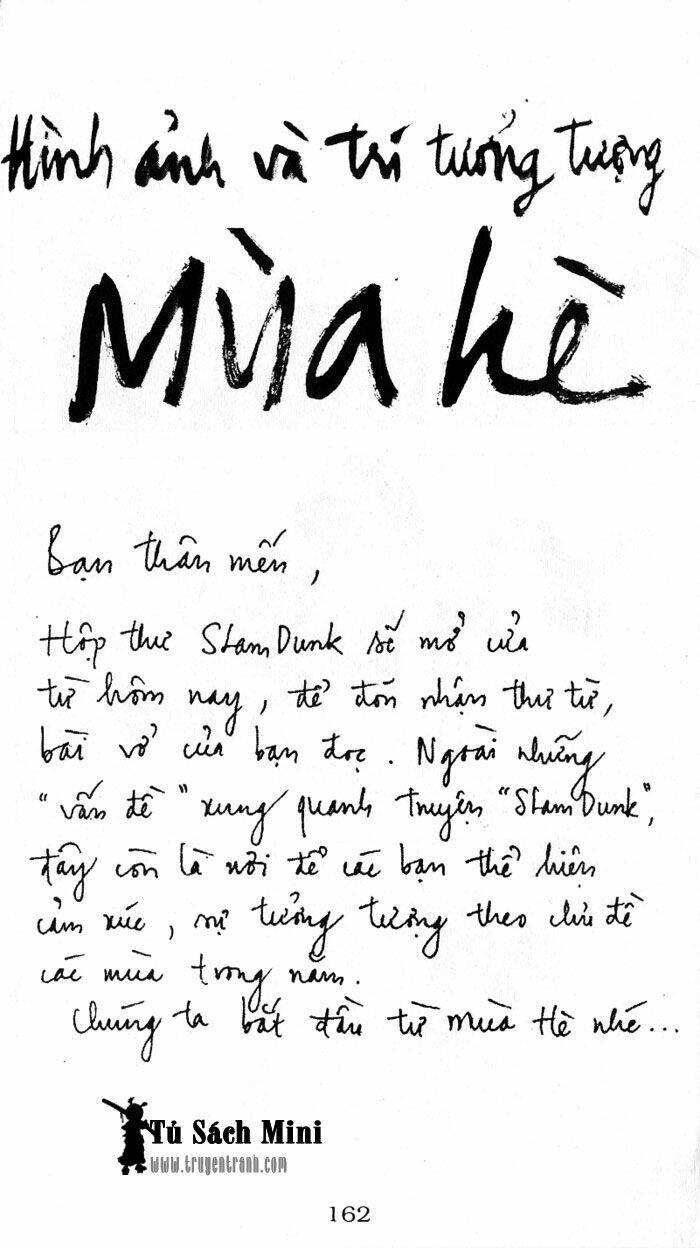 Hình ảnh và trí tưởng tượng
Mùa hè
Bạn thân mến,
Hộp thư SLamDunk sẽ mở cửa
từ hôm nay, để đón nhận thư từ,
bài vở của bạn đọc. Ngoài những
"vấn đề" xung quanh truyện "SLamDunk",
đây còn là nơi để các bạn thể hiện
cảm xúc, sự tưởng tượng theo chủ đề
các mùa trong năm.
Chúng ta bắt đầu từ mùa Hè nhé...
Tủ Sách Mini
www.truyentranh.com
162